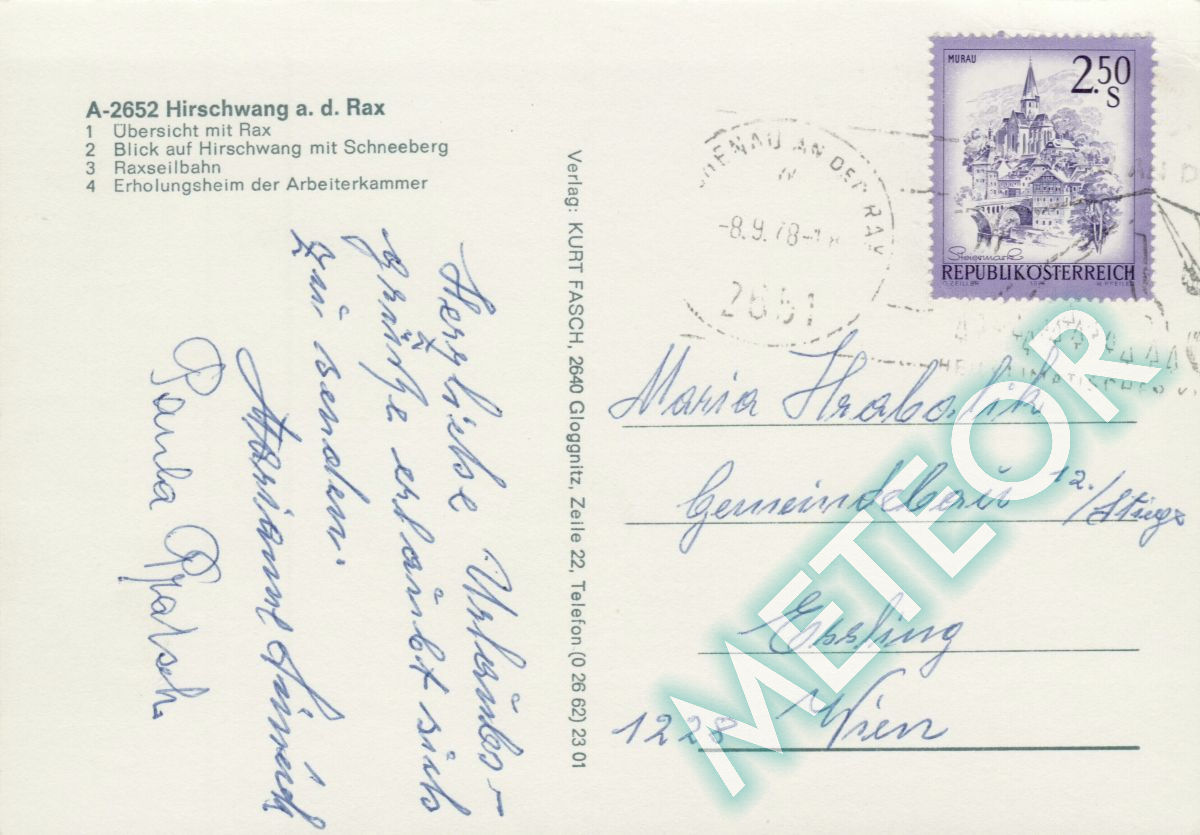 A-2652 Hirschwang a. d. Rax
1 Übersicht mit Rax
2 Blick auf Hirschwang mit Schneeberg
3 Raxseilbahn
4 Erholungsheim der Arbeiterkammer
Herzliche Urlaubs-
grüße erlaubt sich
zu senden.
Marianne
Paula
Verlag: KURT FASCH, 2640 Gloggnitz, Zeile 22, Telefon (0 26 62) 23 01
MURAU
2.50
S
Steiermark
REPUBLIK ÖSTERREICH
O. ZEILLER
AN DER RAX
-8.9.78-
2651
Maria
Gemeindebau 12./Stiege
Essling
1228 Wien
METEOR